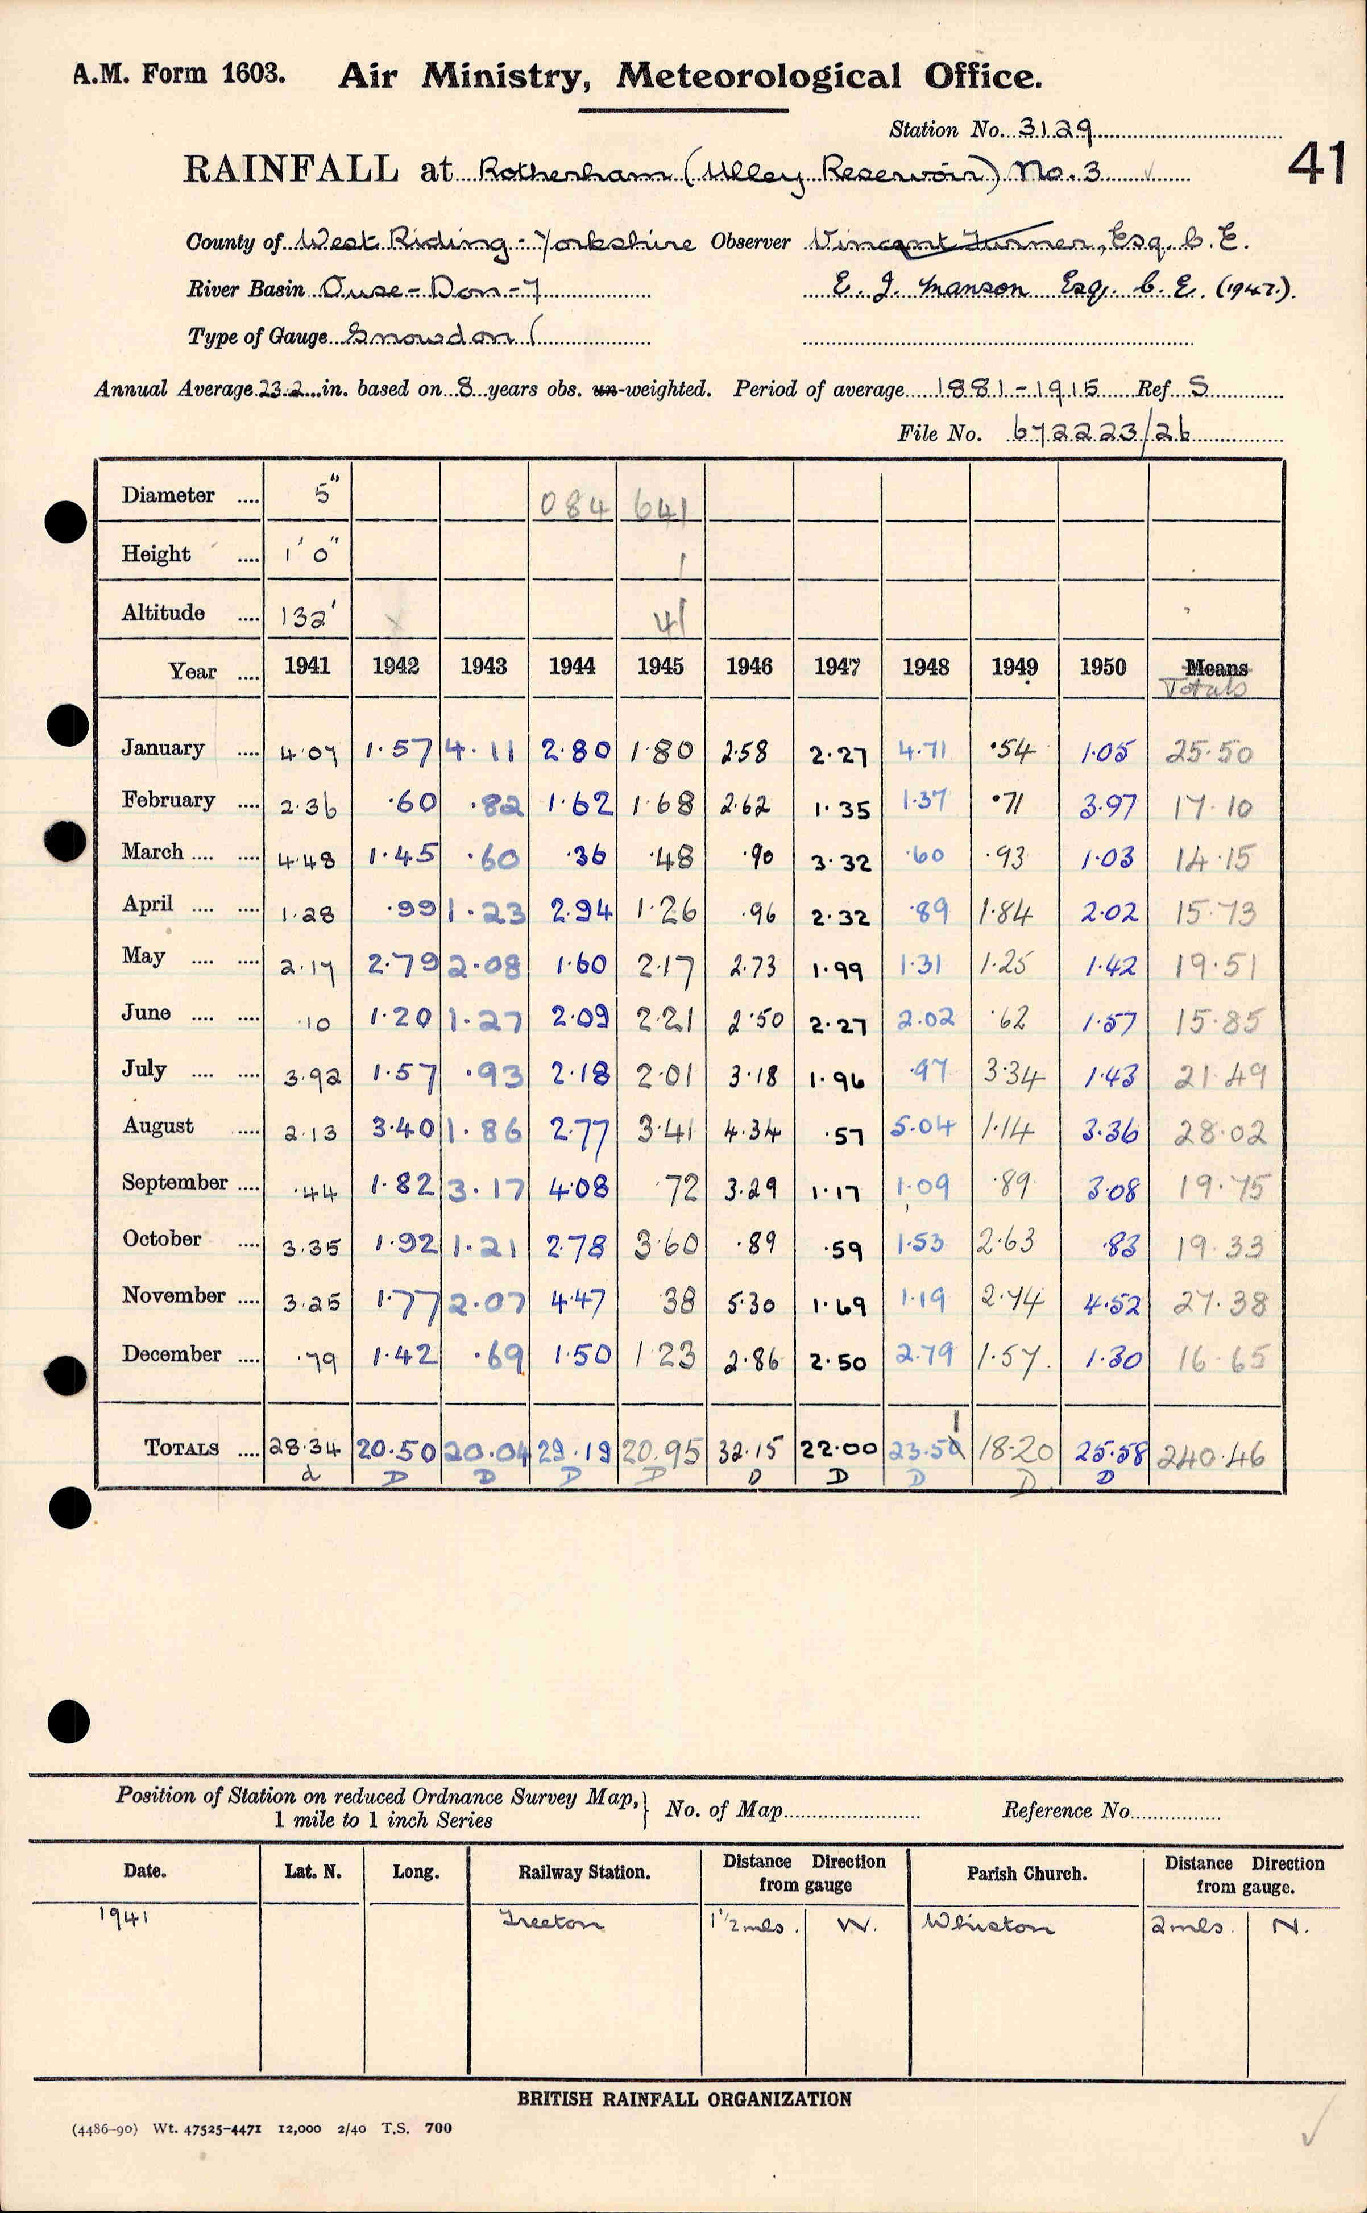 A.M. Form 1603. Air Ministry, Meteorological Office.
Station No. 3129
41
RAINFALL at Rotherham (Ulley Reservoir) No. 3
County of West Riding - Yorkshire Observer Vincent Turner, Esq. C.E.
River Basin Ouse - Don - 7 E. J. Manson Esq. C. E. (1947).
Type of Gauge Snowdon (
Annual Average 23.2 in. based on 8 years obs. un-weighted. Period of average 1881-1915 Ref S
File No. 672223/26
Diameter .... 5" 084 641
Height .... 1' 0" 1
Altitude .... 132' x 41
Year .... 1941 1942 1943 1944 1945 1946 1947 1948 1949 1950 Means
Totals
January .... 4.07 1.57 4.11 2.80 1.80 2.58 2.27 4.71 .54 1.05 25.50
February .... 2.36 .60 .82 1.62 1.68 2.62 1.35 1.37 .71 3.97 17.10
March .... .... 4.48 1.45 .60 .36 .48 .90 3.32 .60 .93 1.03 14.15
April .... .... 1.28 .99 1.23 2.94 1.26 .96 2.32 .89 1.84 2.02 15.73
May .... .... 2.17 2.79 2.08 1.60 2.17 2.73 1.99 1.31 1.25 1.42 19.51
June .... .... .10 1.20 1.27 2.09 2.21 2.50 2.27 2.02 .62 1.57 15.85
July .... .... 3.92 1.57 .93 2.18 2.01 3.18 1.96 .97 3.34 1.43 21.49
August .... 2.13 3.40 1.86 2.77 3.41 4.34 .57 5.04 1.14 3.36 28.02
September .... .44 1.82 3.17 4.08 72 3.29 1.17 1.09 .89 3.08 19.75
October .... 3.35 1.92 1.21 2.78 3.60 .89 .59 1.53 2.63 .83 19.33
November .... 3.25 1.77 2.07 4.47 38 5.30 1.69 1.19 2.74 4.52 27.38
December .... .79 1.42 .69 1.50 1.23 2.86 2.50 2.79 1.57. 1.30 16.65
1
TOTALS .... 28.34 20.50 20.04 29.19 20.95 32.15 22.00 23.50 18.20 25.58 240.46
d D D D D D D D D D
Position of Station on reduced Ordnance Survey Map,} No. of Map Reference No.
1 mile to 1 inch Series
Date. Lat. N. Long. Railway Station. Distance from gauge Direction Parish Church. Distance from gauge. Direction
1941 Treeton 1½ mls. W. Whiston 2 mls. N.
BRITISH RAINFALL ORGANIZATION
(4486-90) Wt. 47525-4471 12,000 2/40 T.S. 700